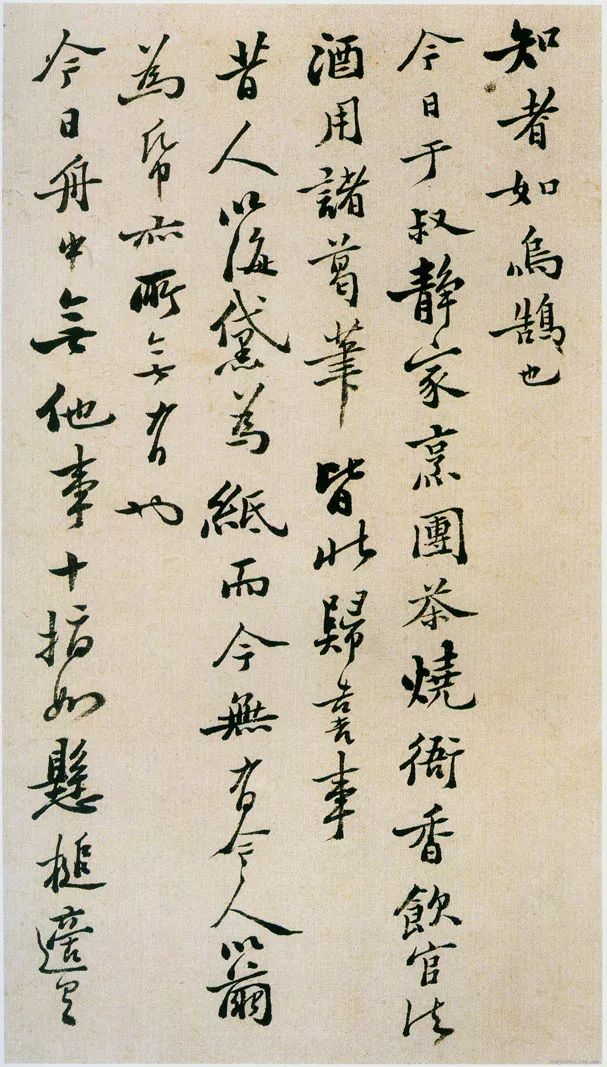 知者如嗚鵠也
今日于叔靜家烹團茶燒衙香飲官法
酒用諸葛筆皆此歸喜事
昔人以海黛為紙而今無有今人以
為帋亦所無有也
今日舟中無他事十指如懸槌適